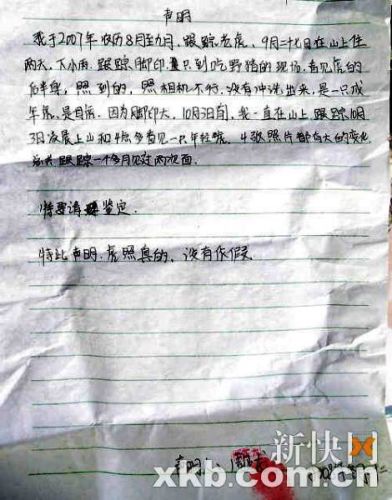 声明
我于2007年农历8月至九月,跟踪老虎,9月二十七日在山上住
两天,下小雨,跟踪脚印,直只到吃野猪的现场,看见虎的
后半身,照到的,照相机不行,没有冲洗出来,是一只成
年虎,是白天,因为脚印大,10月3日前,我一直在山上跟踪,10月
3日凌晨上山和4点多看见一只年轻虎,4张照片都有大的变化
跟踪一个多月见过两次面.
特要请 鉴定.
特此声明.虎照真的,没有作假.
声明:周
新快网
xkb.com.cn